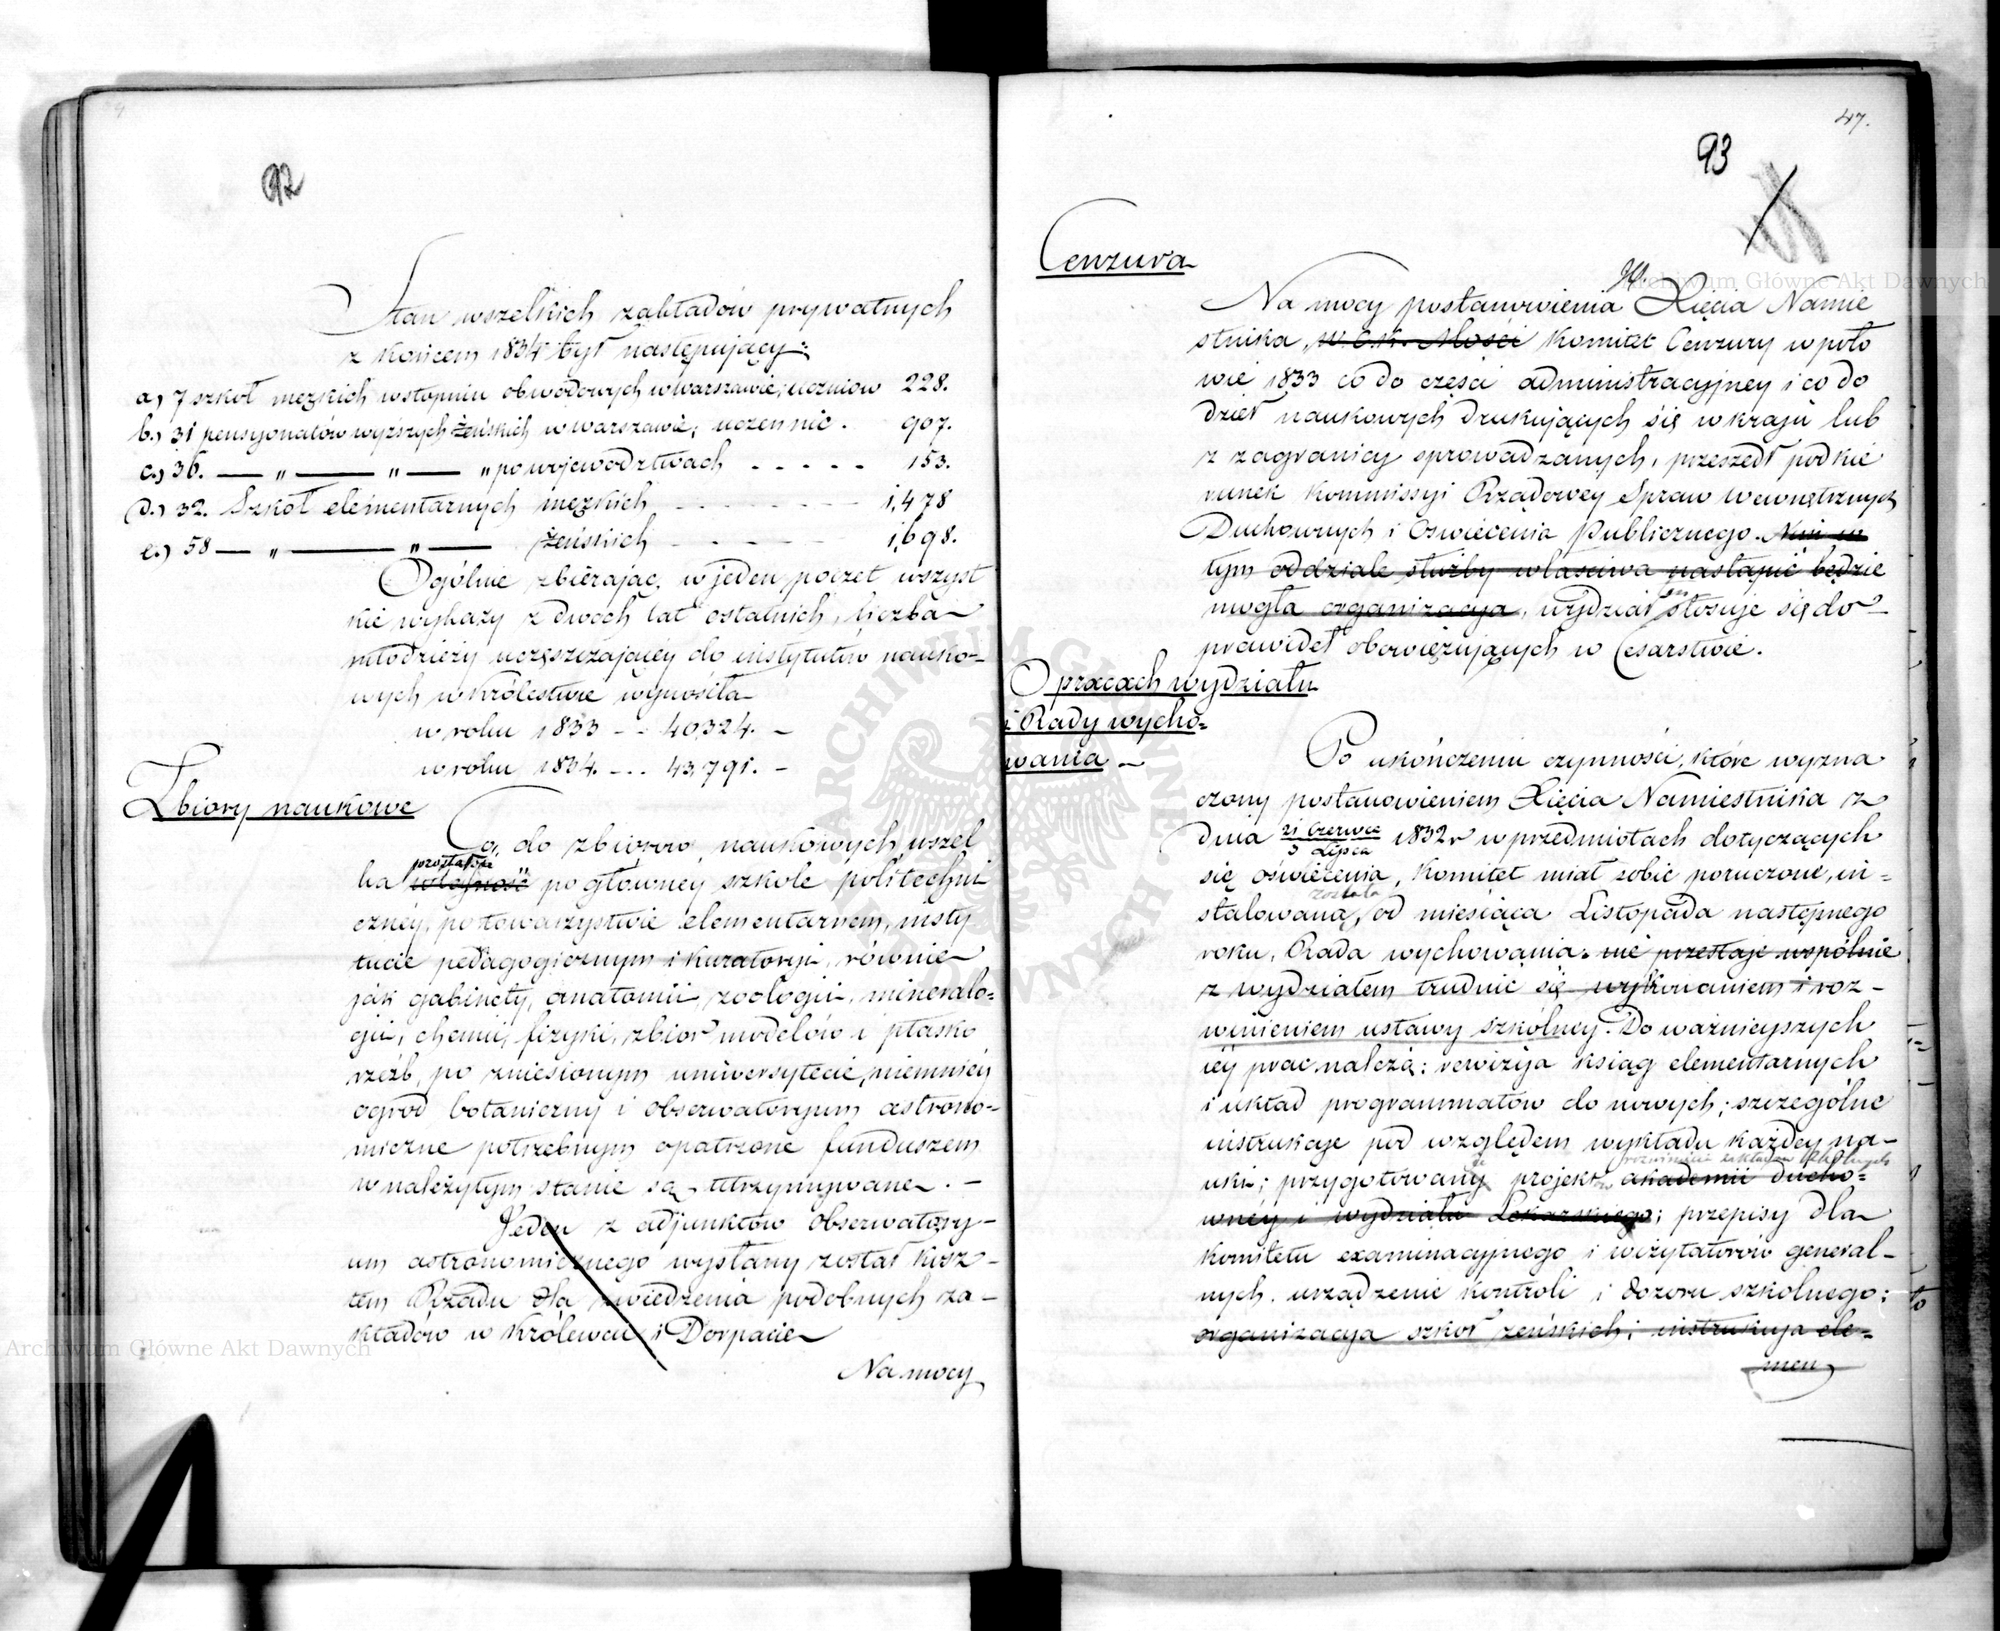 92
Stan wszelkich zakładów prywatnych
z końcem 1834 był następujący:
a.) 7 szkół męzkich wstopniu obwodowych w warszawie; uczniow 228.
b.) 31 pensyonatów wyższych żeńskich w warszawie; uczennic . 907.
c.) 36. — „ — „ — „ po województwach - - - - - 153.
d.) 32. Szkół elementarnych męzkich - - - - - 1,478
e.) 58 — „ — „ — żeńskich - - - - 1,698.
Ogólnie zbierając, w jeden poczet wszyst
kie wykazy z dwoch lat ostatnich, liczba
młodzieży uczęszczającéy do instytutów nauko-
wych w Królestwie wynosiła
w roku 1833 - - 40,324. -
w roku 1834. - - - 43,791. -
Zbiory naukowe
Co do zbiorow naukowych, wszel
pozostała
ka własność po głównéy szkole politechni
cznéy, po towarzystwie elementarnem, insty
tucie pedagogicznym i kuratoryi, równie
jak gabinety, anatomii, zoologii, mineralo=
gii, chemii, fizyki, zbior modelów i płasko
rzeźb, po zniesionym uniwersytecie, niemniéy
ogród botaniczny i obserwatoryum astrono=
miczne potrzebnym opatrzone funduszem
w należytym stanie są utrzymywane. -
Jeden z adjunktów obserwatory-
um astronomicznego wysłany został kosz-
tem Rządu dla zwiedzenia podobnych za-
kładów w Królewcu i Dorpacie
Na mocy
47.
93
Cenzura
Na mocy postanowienia JO. Xięcia Namie
stnika, w. C. K. Mości Komitet Cenzury w poło
wie 1833 co do części administracyjney i co do
dzieł naukowych drukujących się w kraju lub
z zagranicy sprowadzanych, przeszedł pod kie
runek Kommissyi Rządowey Spraw Wewnętrznych
Duchownych i Oswiecenia Publicznego. Nim w
tym oddziale służby właściwa nastąpić będzie
mogła organizacya, wydział ten stosuje się do
prawideł obowięzujących w Cesarstwie.
O pracach wydziału
i Rady wycho=
wania -
Po ukończeniu czynności, które wyzna
czony postanowieniem Xięcia Namiestnika z
dnia 21 Czerwca / 3 Lipca 1832 r w przedmiotach dotyczących
się oświecenia, Komitet miał sobie poruczone, in=
została
stalowaną, od miesiąca Listopada następnego
roku, Rada wychowania. nie przestaje wspólnie
z wydziałem trudnić się wykonaniem i roz-
winieniem ustawy szkólney. Do ważnieyszych
iéy prac należą: rewizya ksiąg elementarnych
i układ programmatów do nowych; szczególne
instrukcje pod względem wykładu każdey na-
rozwinięcia zakładów szkolnych
uki; przygotowany projekt akademii ducho=
wney i wydziału Lekarskiego; przepisy dla
komitetu examinacyjnego i wizytatorów general-
nych. urządzenie kontroli i dozoru szkolnego;
organizacya szkoł żeńskich; instrukcja ele=
men